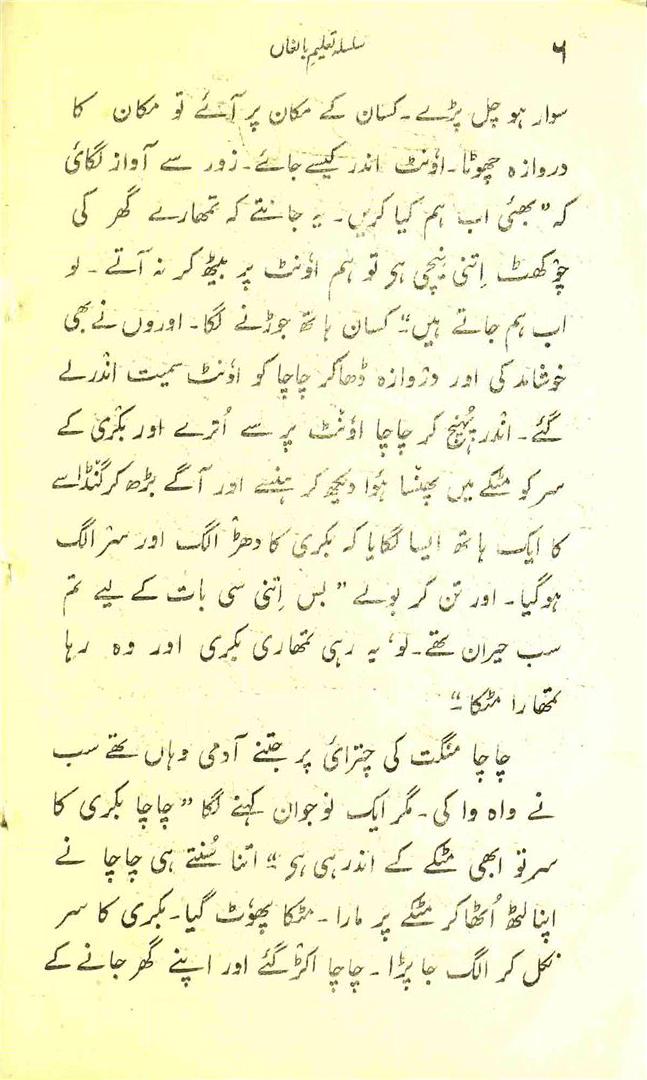 سلسلہ تعلیمِ بالغاں
۶
سوار ہو چل پڑے۔ کسان کے مکان پر آئے تو مکان کا
دروازہ چھوٹا۔ اُونٹ اندر کیسے جائے۔ زور سے آواز لگائی
کہ "بھئی اب ہم کیا کریں۔ یہ جانتے کہ تمھارے گھر کی
چوکھٹ اِتنی نیچی ہی تو ہم اُونٹ پر بیٹھ کر نہ آتے۔ لو
اب ہم جاتے ہیں"۔ کسان ہاتھ جوڑنے لگا۔ اوروں نے بھی
خوشامد کی اور دروازہ ڈھاکر چاچا کو اُونٹ سمیت اندر لے
گئے۔ اندر پہُنچ کر چاچا اُونٹ پر سے اُترے اور بکری کے
سر کو مٹکے میں پھنسا ہُوا دیکھ کر ہنسے اور آگے بڑھ کر گنڈاسے
کا ایک ہاتھ ایسا لگایا کہ بکری کا دھڑ الگ اور سر الگ
ہوگیا۔ اور تن کر بولے "بس اِتنی سی بات کے لیے تم
سب حیران تھے۔ لو، یہ رہی تمھاری بکری اور وہ رہا
تمھارا مٹکا"
چاچا منگت کی چترائی پر جتنے آدمی وہاں تھے سب
نے واہ وا کی۔ مگر ایک نوجوان کہنے لگا "چاچا بکری کا
سر تو ابھی مٹکے کے اندر ہی ہی" اتنا سُنتے ہی چاچا نے
اپنا لٹھ اُٹھا کر مٹکے پر مارا۔ مٹکا پھوٹ گیا۔ بکری کا سر
نکل کر الگ جا پڑا۔ چاچا اکڑ گئے اور اپنے گھر جانے کے